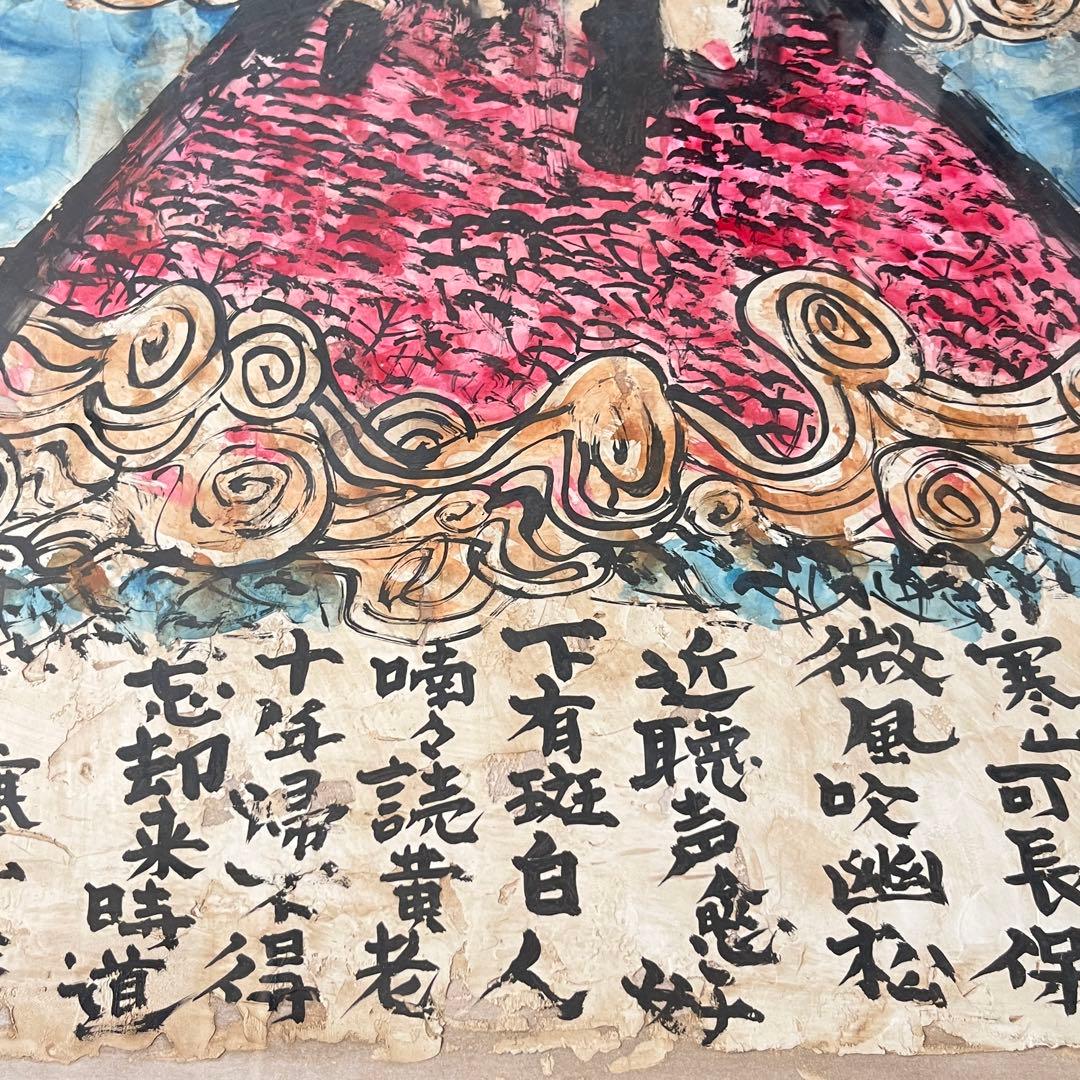 寒山可長保
微風吹幽松
近聴声愈好
下有斑白人
喃々読黄老
十年帰不得
忘却来時道
寒